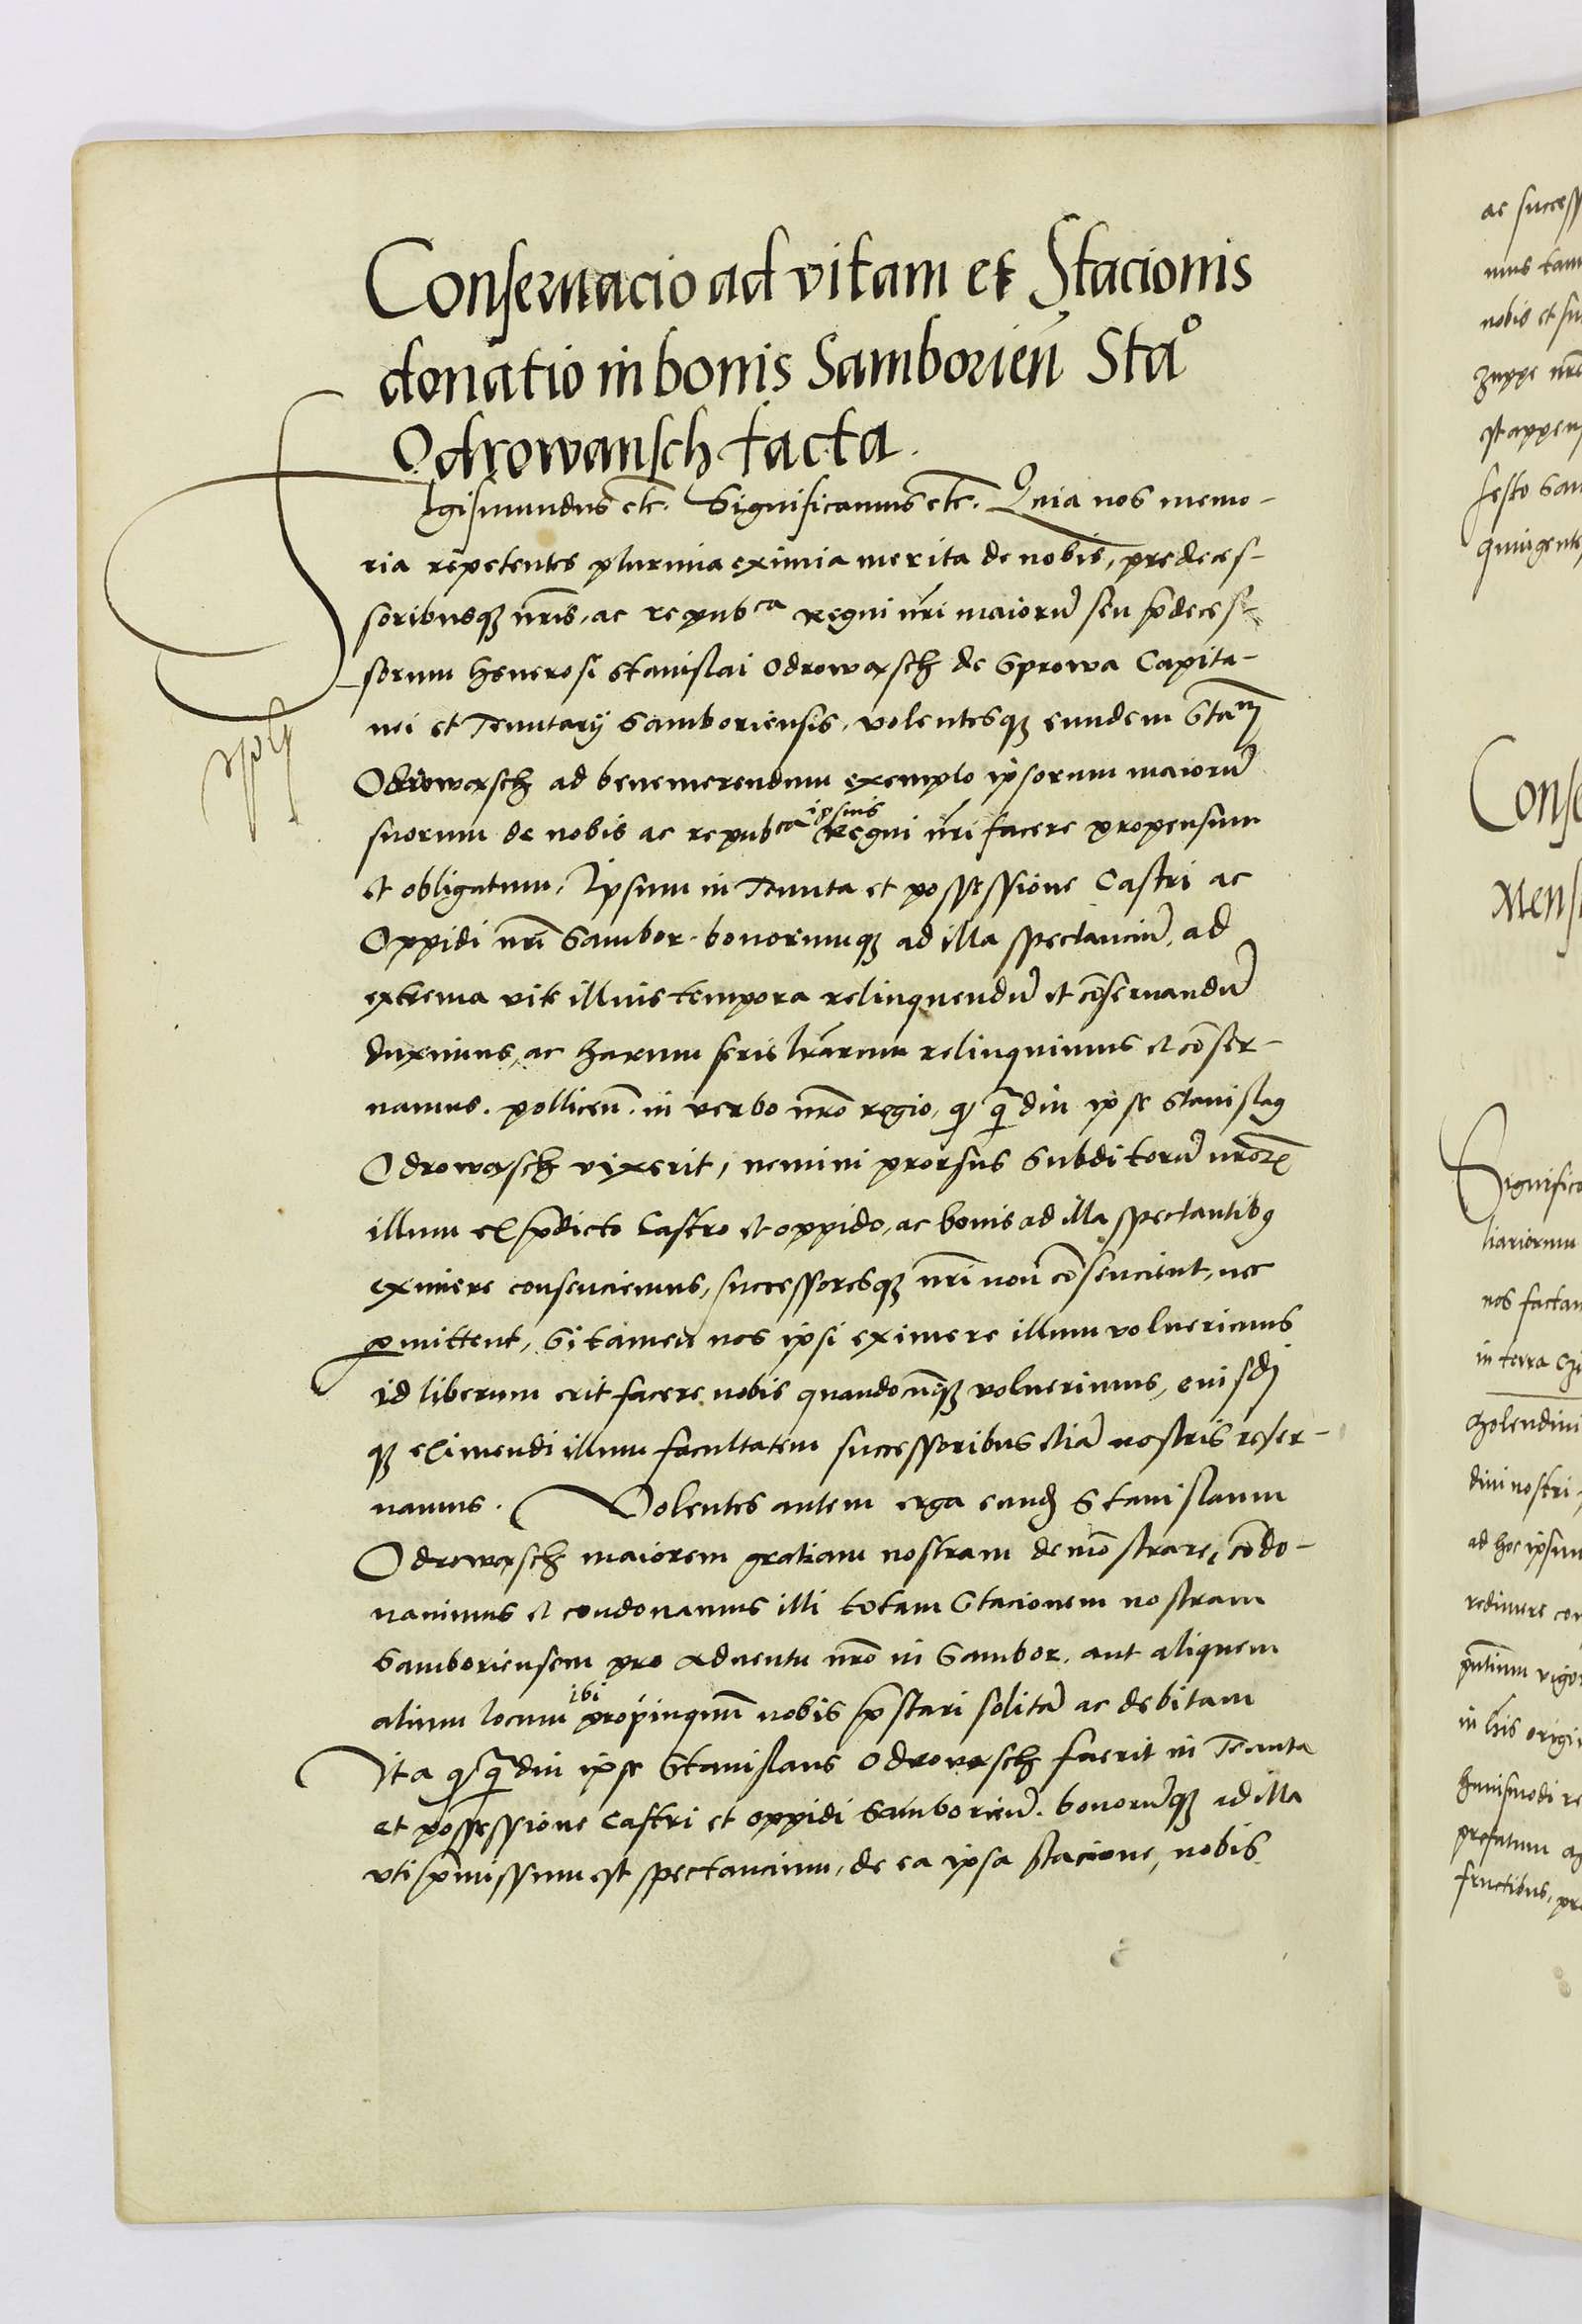 Conservacio ad vitam et Stacionis
donatio in bonis Samborien̄ Sta⁰
Odrowansch facta.
Sigismundus etc. Significamus etc. Quia nos memo-
ria repetentes plurima eximia merita de nobis, predeces-
soribusqꝫ nr̄is, ac repubca Regni nr̄i maiorū seu p̄deces-
sorum Generosi Stanislai Odrowasch de Sprowa Capita-
nei et Tenutarij Samboriensis, volentesqꝫ eundem Stam
Odrowasch ad benemerendum exemplo ipsorum maiorū
suorum de nobis ac repubca ipsius Regni nr̄i facere propensum
et obligatum, Ipsum in Tenuta et possessione Castri ac
Oppidi nr̄i Sambor. bonorumqꝫ ad illa spectanciū, ad
extrema vite illius tempora relinquendū et cōservandū
duximus, ac harum serie lr̄arum relinquimus et cōser-
vamus. pollicen̄. in verbo nr̄o regio, qꝫ q̄diu ipse Stanislaꝰ
Odrowasch vixerit, nemini prorsus Subditorū nr̄orꝫ
illum ex p̄dicto Castro et oppido, ac bonis ad illa spectantibꝰ
eximere consenciemus, successoresqꝫ nr̄i non cōsencient, nec
ꝑmittent, Si tamen nos ipsi eximere illum voluerimus
id liberum erit facere nobis quandocūqꝫ voluerimus, eiusdj
qꝫ eximendi illum facultatem successoribus etiā nostris reser-
vamus. Volentes autem erga eundꝫ Stanislaum
Odrowasch maiorem gratiam nostram demōstrare, cōdo-
navimus et condonamus illi totam Stacionem nostram
Samboriensem pro adventu nr̄o in Sambor. aut aliquem
alium locum ibi propinquū nobis p̄stari solitā ac debitam
Ita qꝫ q̄diu ipse Stanislaus Odrowasch fuerit in Tenuta
et possessione Castri et oppidi Samborien̄. bonorūqꝫ ad illa
uti p̄missum est spectancium, de ea ipsa stacione, nobis
ac success
nobis et su
zuppe nr̄e
festo San
quingente
Conse
Mens
Significa
liariorum
nos factam
in terra
dini nostri
ad hoc ipsum
redimere con
in lr̄is origi
huiusmodi re
prefatum
fructibus, pre